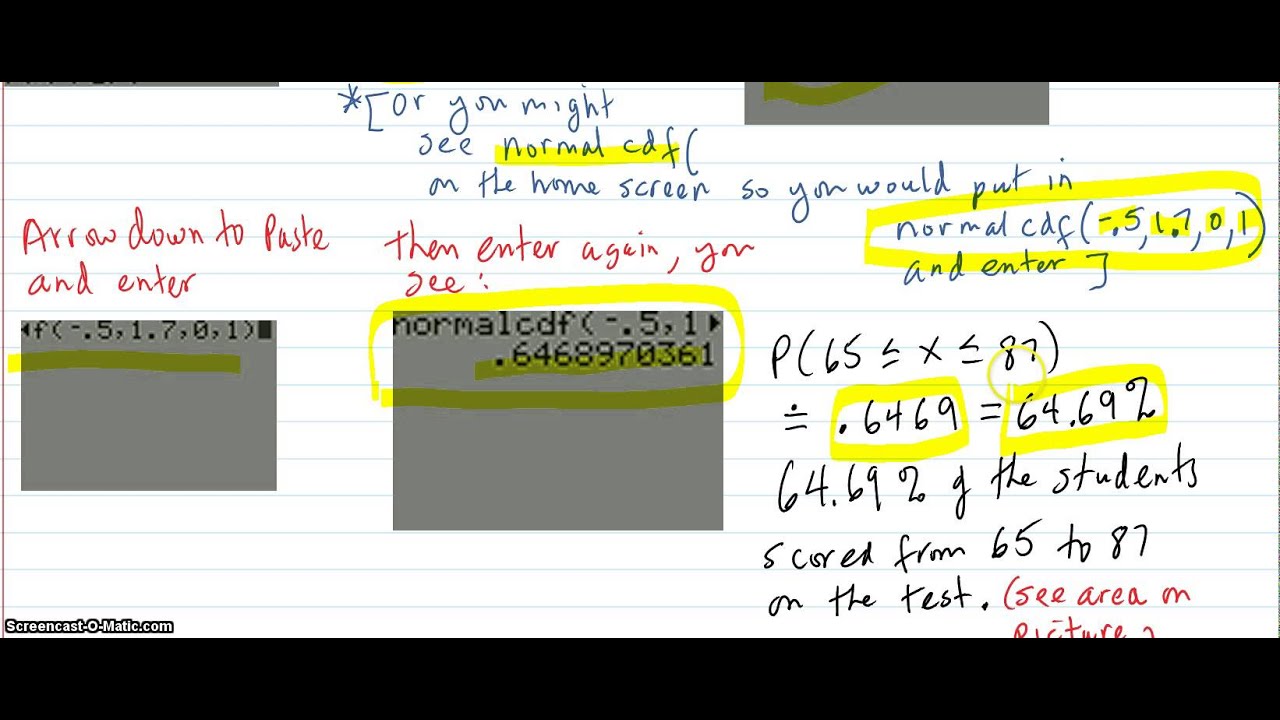 *[Or you might
see normal cdf(
on the home screen so you would put in
normal cdf(-.5,1.7,0,1)
and enter]
Arrow down to Paste
and enter
then enter again, you
see:
f(-.5,1.7,0,1)
normalcdf(-.5,1
.6468970361
P(65 ≤ x ≤ 87)
≐ .6469 = 64.69%
64.69% of the students
scored from 65 to 87
on the test. (see area on
picture
Screencast-O-Matic.com